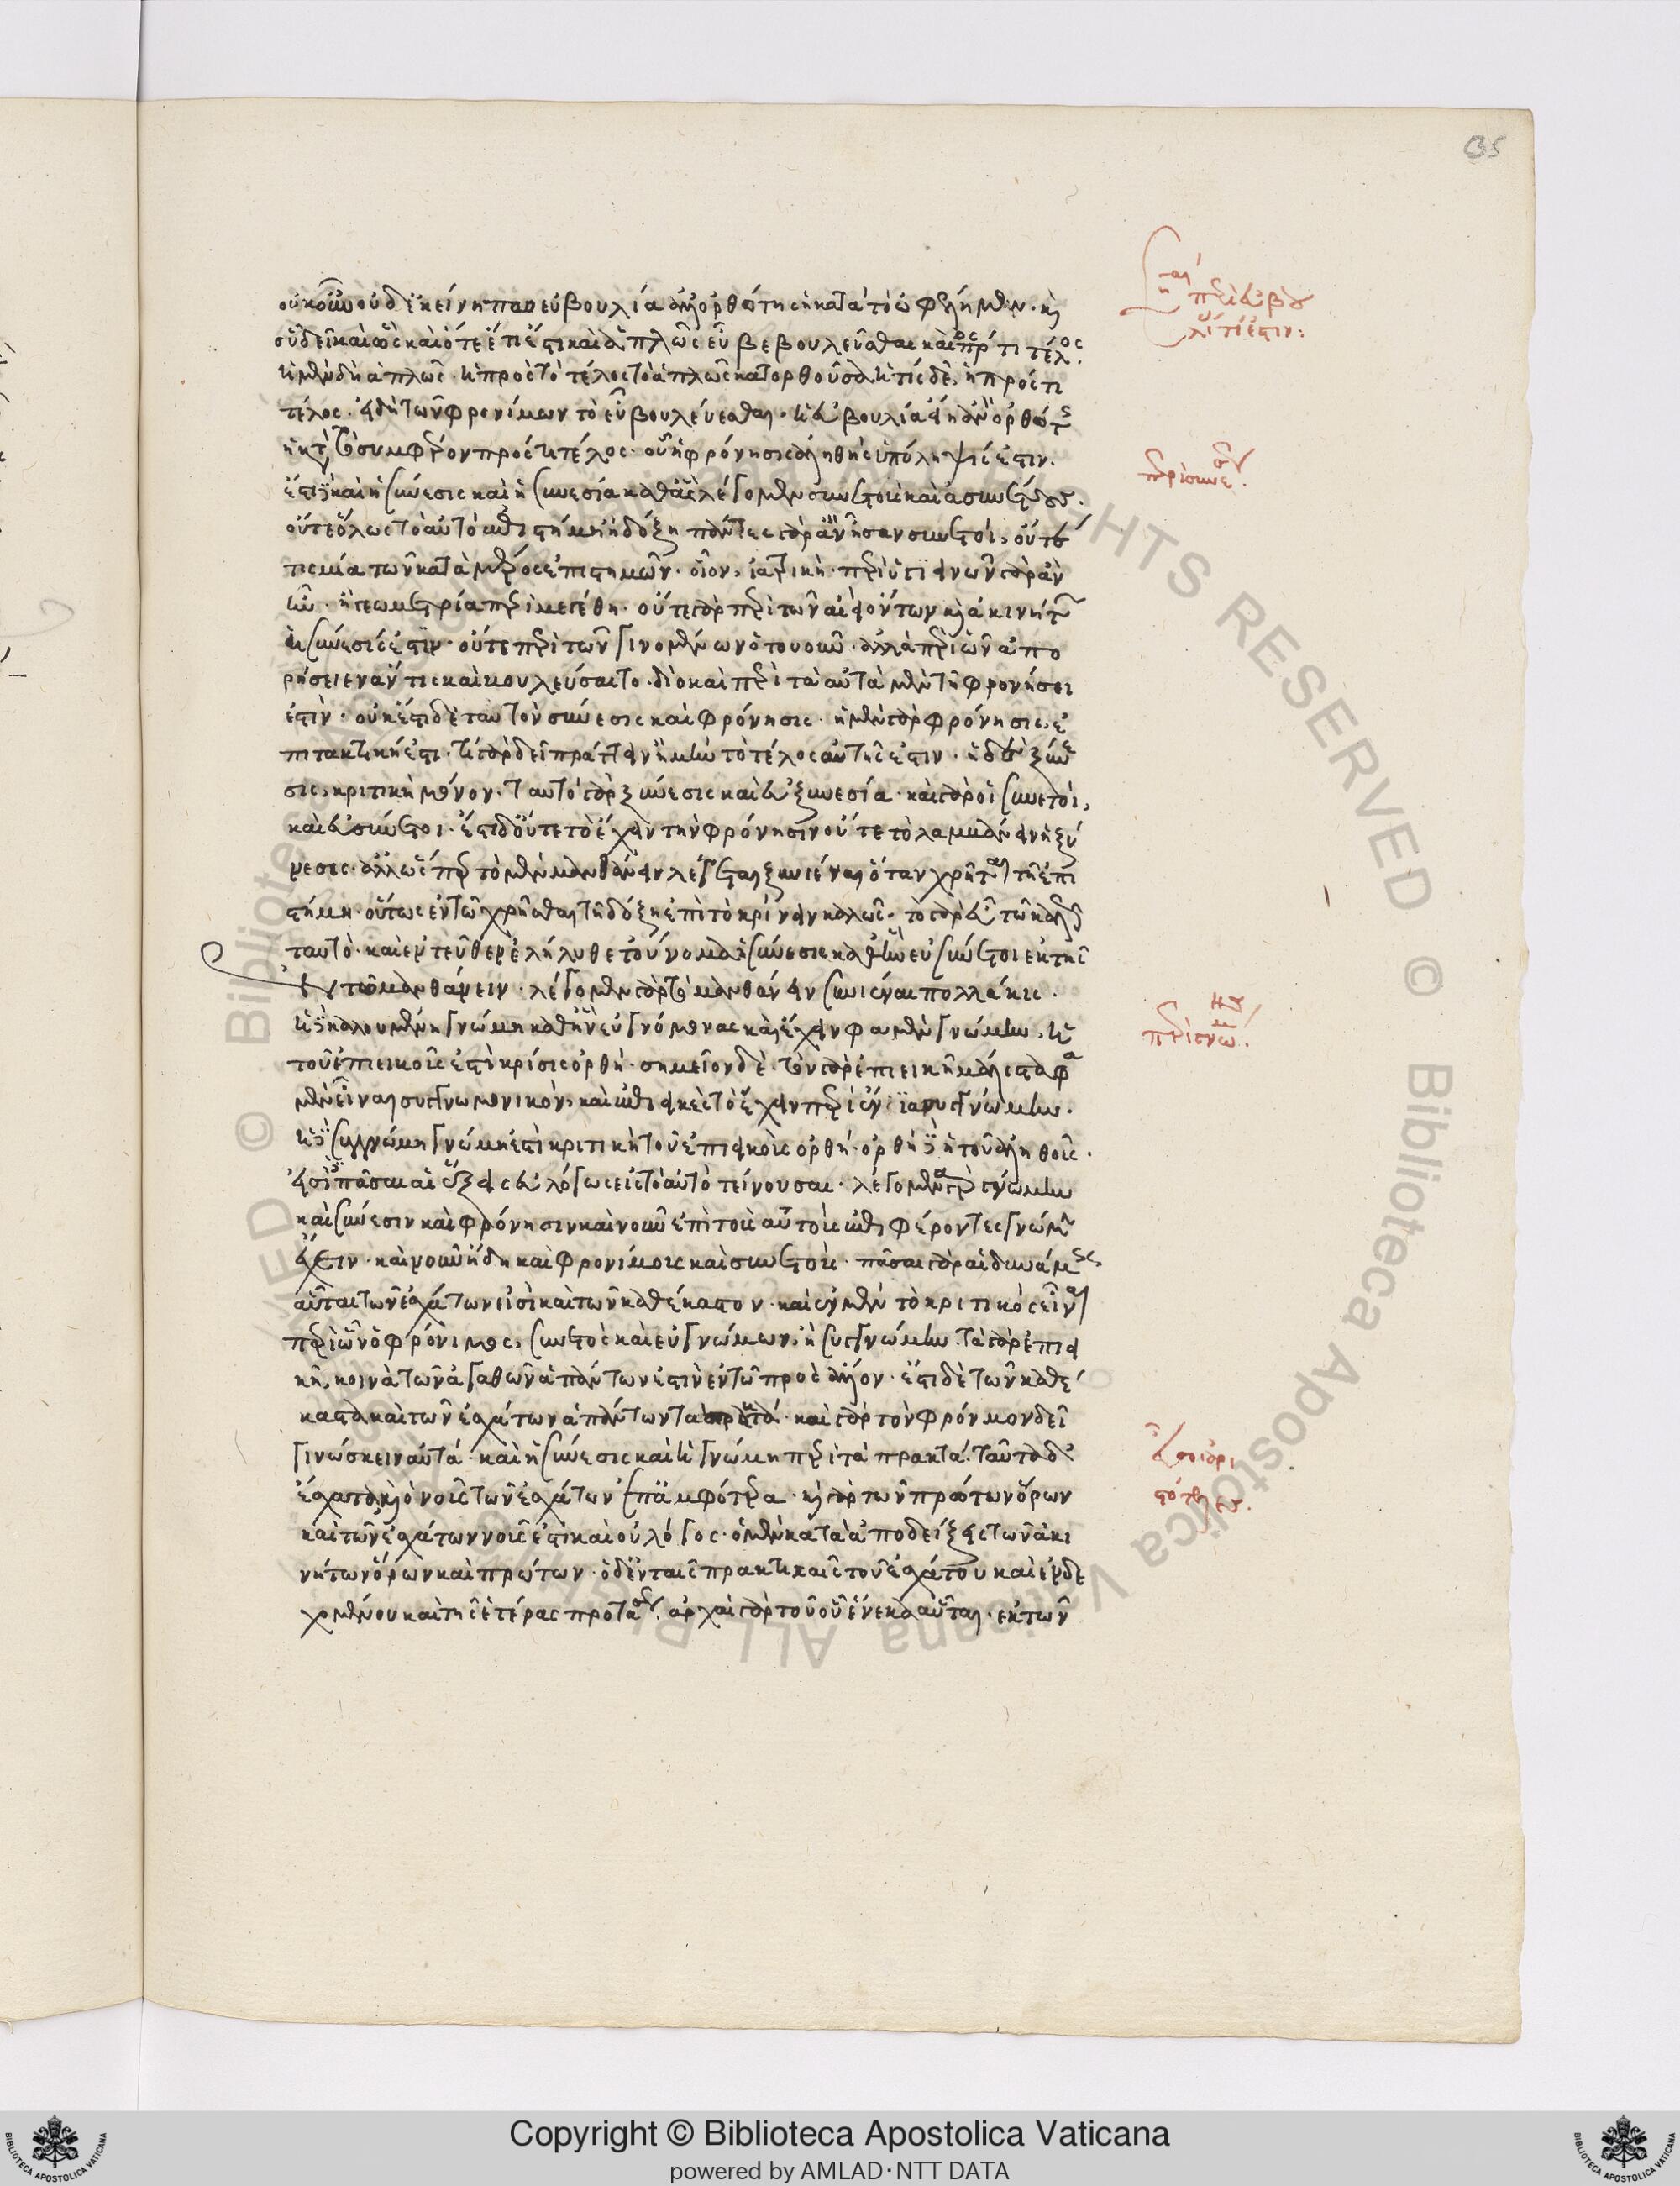 οὐκοῦν οὐδ' ἐκείνη πω εὐβουλία ἀλλ' ὀρθότης ἡ κατὰ τὸ ὠφέλιμον. καὶ
οὗ δεῖ καὶ ὣς καὶ ὅτε. ἔτι ἔστι καὶ ἁπλῶς εὖ βεβουλεῦσθαι καὶ πρός τι τέλος.
ἡ μὲν δὴ ἁπλῶς. ἡ πρὸς τὸ τέλος τὸ ἁπλῶς κατορθοῦσα. ἡ τὶς δὲ, ἡ πρός τι
τέλος. εἰ δὴ τῶν φρονίμων τὸ εὖ βουλεύεσθαι. ἡ εὐβουλία εἴη ἂν ὀρθότης
ἡ κατὰ τὸ συμφέρον πρός τι τέλος. οὗ ἡ φρόνησις ἀληθὴς ὑπόληψίς ἐστιν.
ἔστι δὲ καὶ ἡ σύνεσις καὶ ἡ συνεσία καθ' ἃς λέγομεν συνετοὺς καὶ ἀσυνέτους.
οὔτε ὅλως τὸ αὐτὸ ἐπιστήμῃ ἢ δόξῃ πάντες γὰρ ἂν ἦσαν συνετοί, οὔτέ
τις μία τῶν κατὰ μέρος ἐπιστημῶν. οἷον, ἰατρικὴ. περὶ ὑγιεινῶν γὰρ ἂν
ἦν. ἢ γεωμετρία περὶ μεγέθη. οὔτε γὰρ περὶ τῶν ἀεὶ ὄντων καὶ ἀκινήτων
ἡ σύνεσίς ἐστιν. οὔτε περὶ τῶν γινομένων ὁτουοῦν. ἀλλὰ περὶ ὧν ἀπο
ρήσειεν ἄν τις καὶ βουλεύσαιτο. διὸ καὶ περὶ τὰ αὐτὰ μὲν τῇ φρονήσει
ἐστὶν. οὐκ ἔστι δὲ ταυτὸν σύνεσις καὶ φρόνησις. ἡ μὲν γὰρ φρόνησις, ἐ
πιτακτική ἐστι. τί γὰρ δεῖ πράττειν ἢ μὴ τὸ τέλος αὐτῆς ἐστιν. ἡ δὲ ξύνε
σις, κριτικὴ μόνον. ταυτὸ γὰρ ξύνεσις καὶ εὐξυνεσία. καὶ γὰρ οἱ συνετοὶ,
καὶ εὐσύνετοι. ἔστι δ' οὔτε τὸ ἔχειν τὴν φρόνησιν οὔτε τὸ λαμβάνειν ἡ ξύ
νεσις. ἀλλ' ὥσπερ τὸ μανθάνειν λέγεται ξυνιέναι ὅταν χρῆται τῇ ἐπι
στήμῃ. οὕτως ἐν τῷ χρῆσθαι τῇ δόξῃ ἐπὶ τὸ κρίνειν καλῶς. τὸ γὰρ εὖ τῷ καλῶς
ταυτὸ. καὶ ἐντεῦθεν ἐλήλυθε τοὔνομα ἡ σύνεσις καθ' ἣν εὐσύνετοι ἐκ τῆς
ἐν τῷ μανθάνειν. λέγομεν γὰρ τὸ μανθάνειν συνιέναι πολλάκις.
ἡ δὲ καλουμένη γνώμη καθ' ἣν εὐγνόμονας καὶ ἔχειν φαμὲν γνώμην, ἡ
τοῦ ἐπιεικοῦς ἐστὶ κρίσις ὀρθή. σημεῖον δὲ. τὸν γὰρ ἐπιεικῆ μάλιστα φα
μὲν εἶναι συγγνωμονικὸν, καὶ ἐπιεικὲς τὸ ἔχειν περὶ ἔνια συγγνώμην.
ἡ δὲ συγγνώμη γνώμη ἐστὶ κριτικὴ τοῦ ἐπιεικοῦς ὀρθή. ὀρθὴ δὲ ἡ τοῦ ἀληθοῦς.
εἰσὶ δὲ πᾶσαι αἱ ἕξεις εὐλόγως εἰς τὸ αὐτὸ τείνουσαι. λέγομεν γὰρ γνώμην
καὶ σύνεσιν καὶ φρόνησιν καὶ νοῦν ἐπὶ τοὺς αὐτοὺς ἐπιφέροντες γνώμην
ἔχειν. καὶ νοῦν ἤδη καὶ φρονίμους καὶ συνετούς. πᾶσαι γὰρ αἱ δυνάμεις
αὗται τῶν ἐσχάτων εἰσὶ καὶ τῶν καθέκαστον. καὶ ἐν μὲν τὸ κριτικὸς εἶναι
περὶ ὧν ὁ φρόνιμος, συνετὸς καὶ εὐγνώμων, ἢ συγγνώμην. τὰ γὰρ ἐπιει
κῆ, κοινὰ τῶν ἀγαθῶν ἁπάντων ἐστὶν ἐν τῷ πρὸς ἄλλον. ἔστι δὲ τῶν καθέ
καστα καὶ τῶν ἐσχάτων ἁπάντων τὰ πρακτά. καὶ γὰρ τὸν φρόνιμον δεῖ
γινώσκειν αὐτά. καὶ ἡ σύνεσις καὶ ἡ γνώμη περὶ τὰ πρακτά. ταῦτα δ'
ἔσχατα. καὶ ὁ νοῦς τῶν ἐσχάτων ἐπ' ἀμφότερα. καὶ γὰρ τῶν πρώτων ὅρων
καὶ τῶν ἐσχάτων νοῦς ἐστὶ καὶ οὐ λόγος. ὁ μὲν κατὰ ἀποδείξεις τῶν ἀκι
νήτων ὅρων καὶ πρώτων. ὁ δ' ἐν ταῖς πρακτικαῖς τοῦ ἐσχάτου καὶ ἐνδε
χομένου καὶ τῆς ἑτέρας προτάσεως. ἀρχαὶ γὰρ τοῦ οὗ ἕνεκα αὗται. ἐκ τῶν
περὶ εὐβου
λί τί ἐστιν:
περὶ συνε.
περὶ γνώμης.